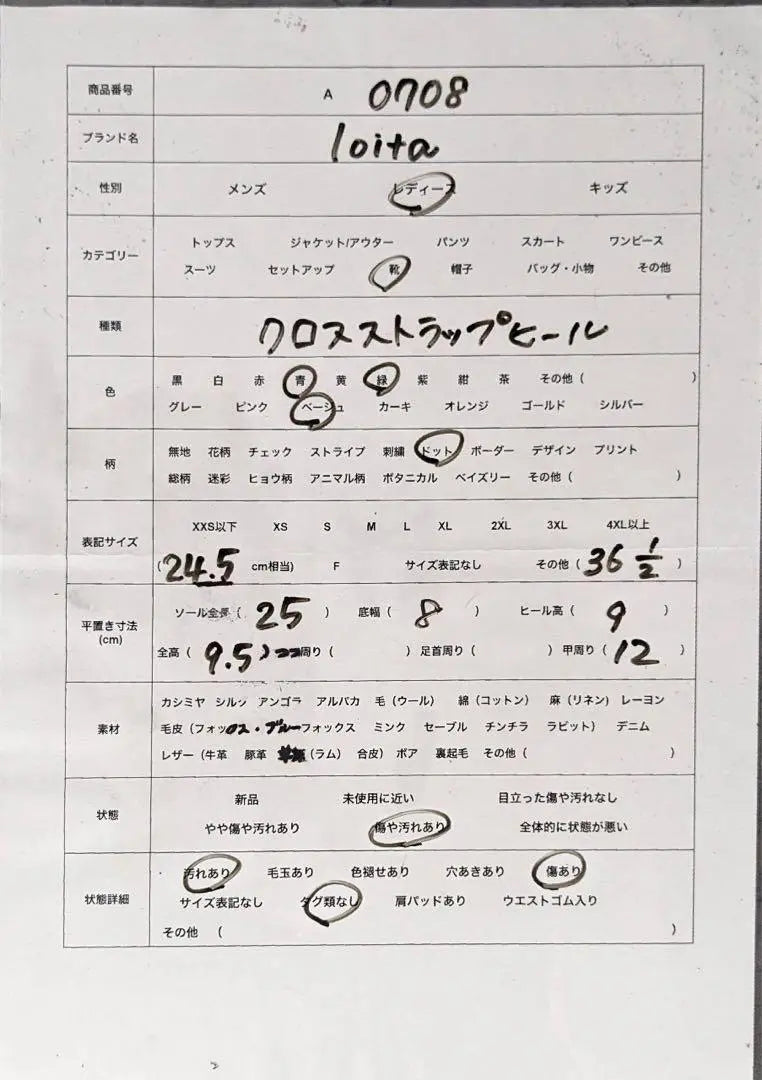 商品番号 A 0708
ブランド名 loita
性別 メンズ レディース キッズ
カテゴリー
トップス ジャケット/アウター パンツ スカート ワンピース
スーツ セットアップ 靴 帽子 バッグ・小物 その他
種類 クロスストラップヒール
色
黒 白 赤 青 黄 緑 紫 紺 茶 その他 ( )
グレー ピンク ベージュ カーキ オレンジ ゴールド シルバー
柄
無地 花柄 チェック ストライプ 刺繍 ドット ボーダー デザイン プリント
総柄 迷彩 ヒョウ柄 アニマル柄 ボタニカル ペイズリー その他 ( )
表記サイズ
XXS以下 XS S M L XL 2XL 3XL 4XL以上
( 24.5 cm相当) F サイズ表記なし その他 ( 36 1/2 )
平置き寸法
(cm)
ソール全長 ( 25 ) 底幅 ( 8 ) ヒール高 ( 9 )
全高 ( 9.5 ) 周り ( ) 足首周り ( ) 甲周り ( 12 )
素材
カシミヤ シルク アンゴラ アルパカ 毛 (ウール) 綿 (コットン) 麻 (リネン) レーヨン
毛皮 (フォックス・ブルーフォックス ミンク セーブル チンチラ ラビット) デニム
レザー (牛革 豚革 (ラム) 合皮) ボア 裏起毛 その他 ( )
状態
新品 未使用に近い 目立った傷や汚れなし
やや傷や汚れあり 傷や汚れあり 全体的に状態が悪い
状態詳細
汚れあり 毛玉あり 色褪せあり 穴あきあり 傷あり
サイズ表記なし タグ類なし 肩パッドあり ウエストゴム入り
その他 ( )